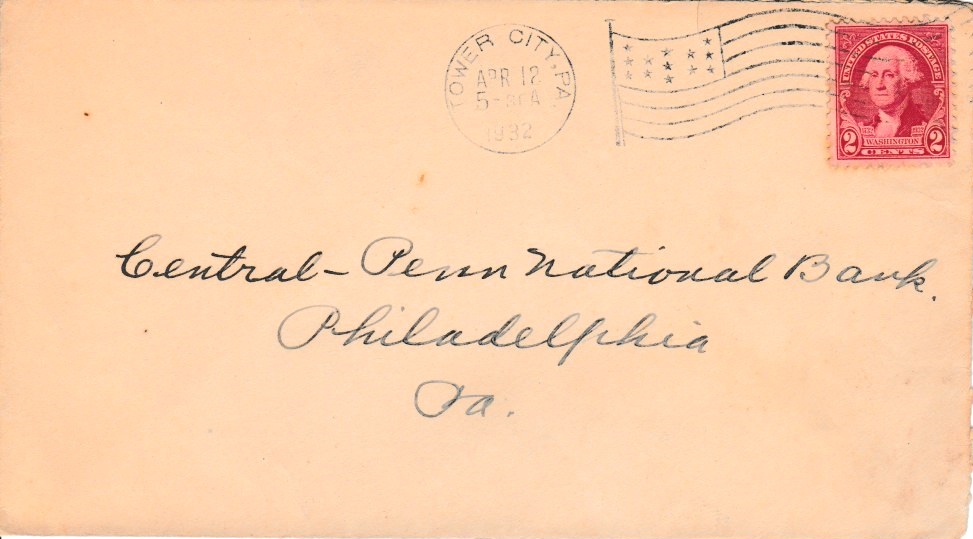 TOWER CITY, PA
APR 12
1932
UNITED STATES POSTAGE
2 WASHINGTON 2
CENTS
Central-Penn National Bank.
Philadelphia
Pa.